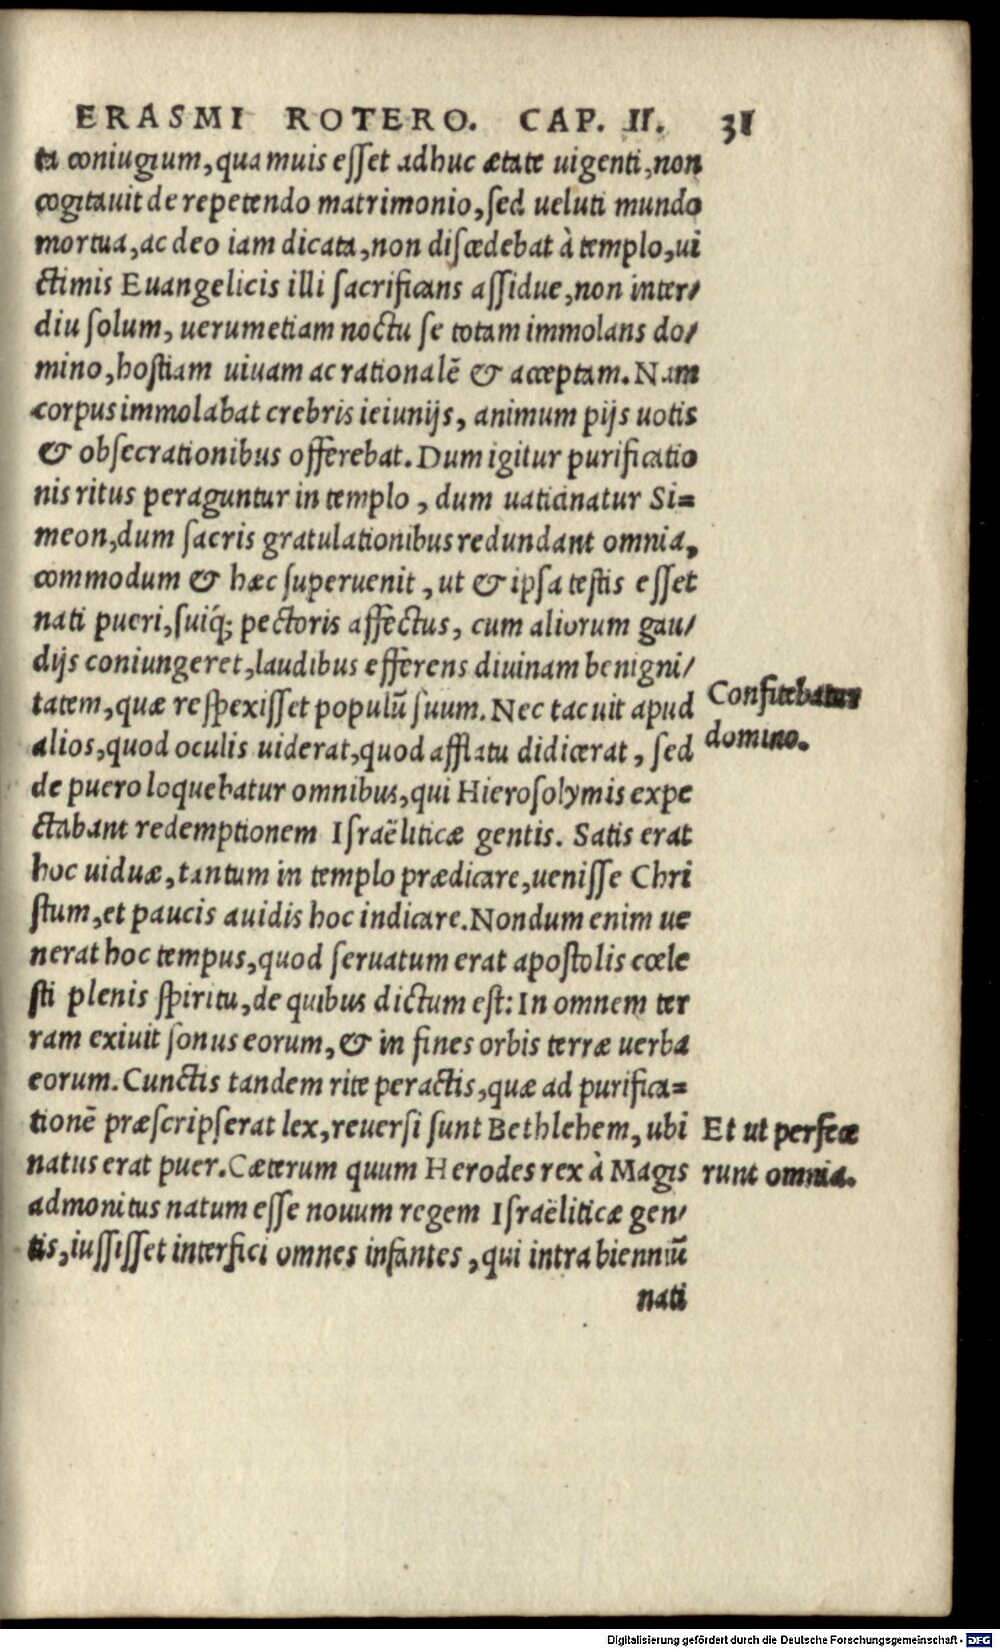 ERASMI ROTERO. CAP. II. 31
ta coniugium, quamuis esset adhuc ætate uigenti, non
cogitauit de repetendo matrimonio, sed ueluti mundo
mortua, ac deo iam dicata, non discedebat à templo, ui
ctimis Euangelicis illi sacrificans assidue, non inter/
diu solum, uerumetiam noctu se totam immolans do/
mino, hostiam uiuam ac rationalē & acceptam. Nam
corpus immolabat crebris ieiunijs, animum pijs uotis
& obsecrationibus offerebat. Dum igitur purificatio
nis ritus peraguntur in templo, dum uaticinatur Si=
meon, dum sacris gratulationibus redundant omnia,
commodum & hæc superuenit, ut & ipsa testis esset
nati pueri, suiq́; pectoris affectus, cum aliorum gau/
dijs coniungeret, laudibus efferens diuinam benigni/
tatem, quæ respexisset populū suum. Nec tacuit apud
alios, quod oculis uiderat, quod afflatu didicerat, sed
de puero loquebatur omnibus, qui Hierosolymis expe
ctabant redemptionem Israëliticæ gentis. Satis erat
hoc uiduæ, tantum in templo prædicare, uenisse Chri
stum, et paucis auidis hoc indicare. Nondum enim ue
nerat hoc tempus, quod seruatum erat apostolis cœle
sti plenis spiritu, de quibus dictum est: In omnem ter
ram exiuit sonus eorum, & in fines orbis terræ uerba
eorum. Cunctis tandem rite peractis, quæ ad purifica=
tionē præscripserat lex, reuersi sunt Bethlehem, ubi
natus erat puer. Cæterum quum Herodes rex à Magis
admonitus natum esse nouum regem Israëliticæ gen/
tis, iussisset interfici omnes infantes, qui intra bienniū
nati
Confitebatur
domino.
Et ut perfece
runt omnia.
Digitalisierung gefördert durch die Deutsche Forschungsgemeinschaft - DFG